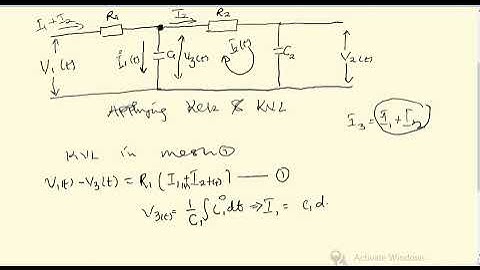 I₁+I₂ R₁ I₂ R₂
V₁(t) i₁(t) C₁ V₃(t) I₂(t) C₂ V₂(t)
Applying KCL & KVL
I₃ = I₁+I₂
KVL in mesh ①
V₁(t) - V₃(t) = R₁(I₁(t)+I₂(t)) —— ①
V₃(t) = 1/C₁ ∫i₁ dt ⇒ I₁ = C₁ d.
Activate Windows